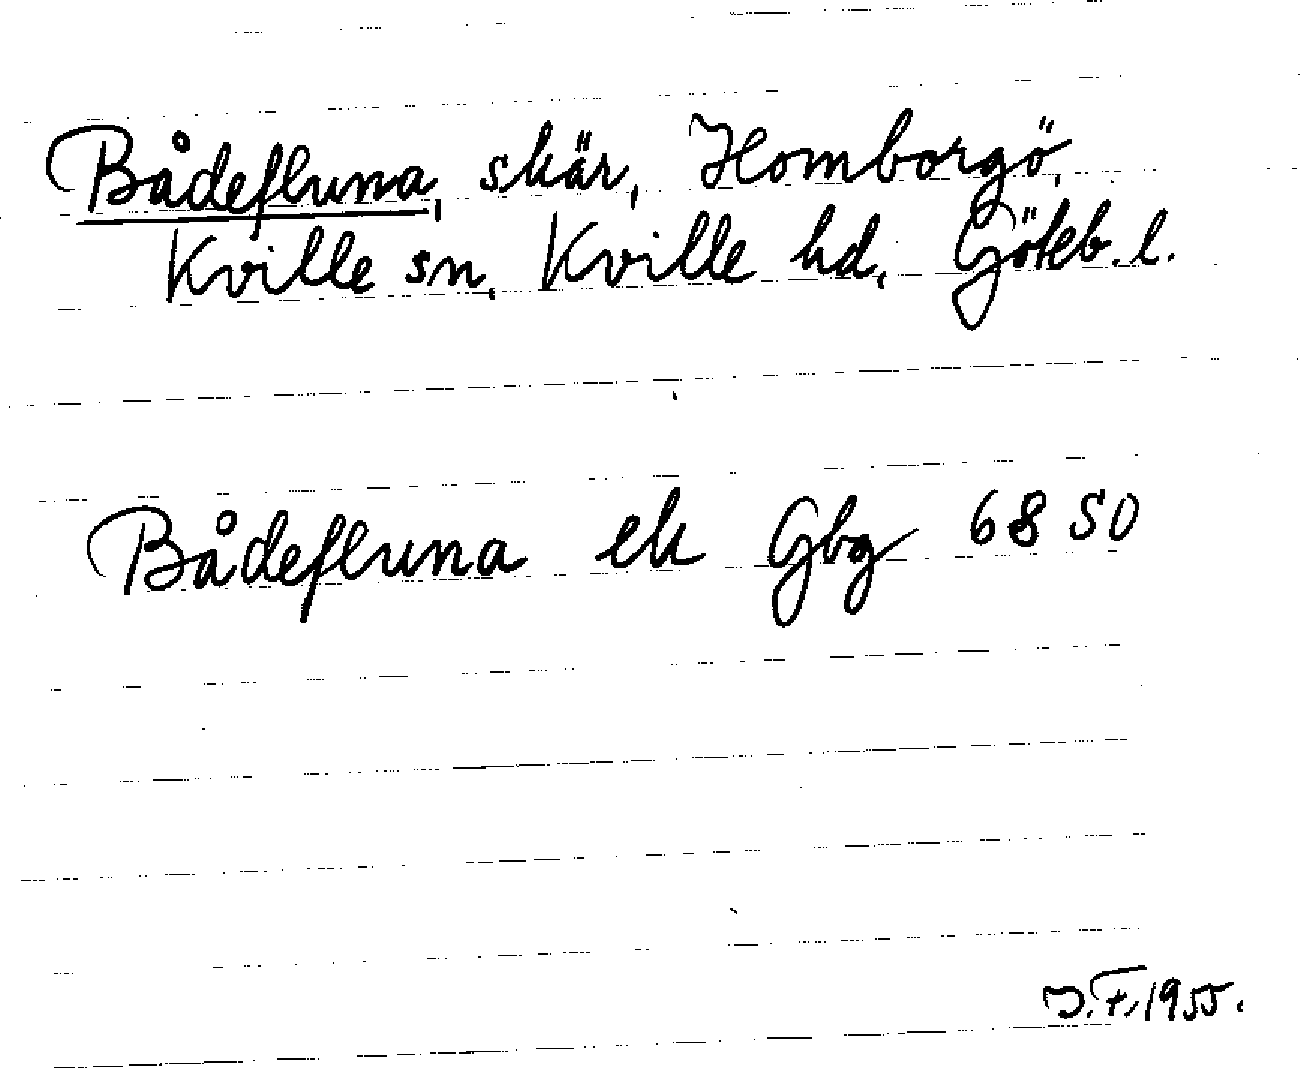 Bådefluna, skär, Homborgö,
Kville sn, Kville hd, Göteb. l.
Bådefluna ek Gbg 6850
J.F. 1955.